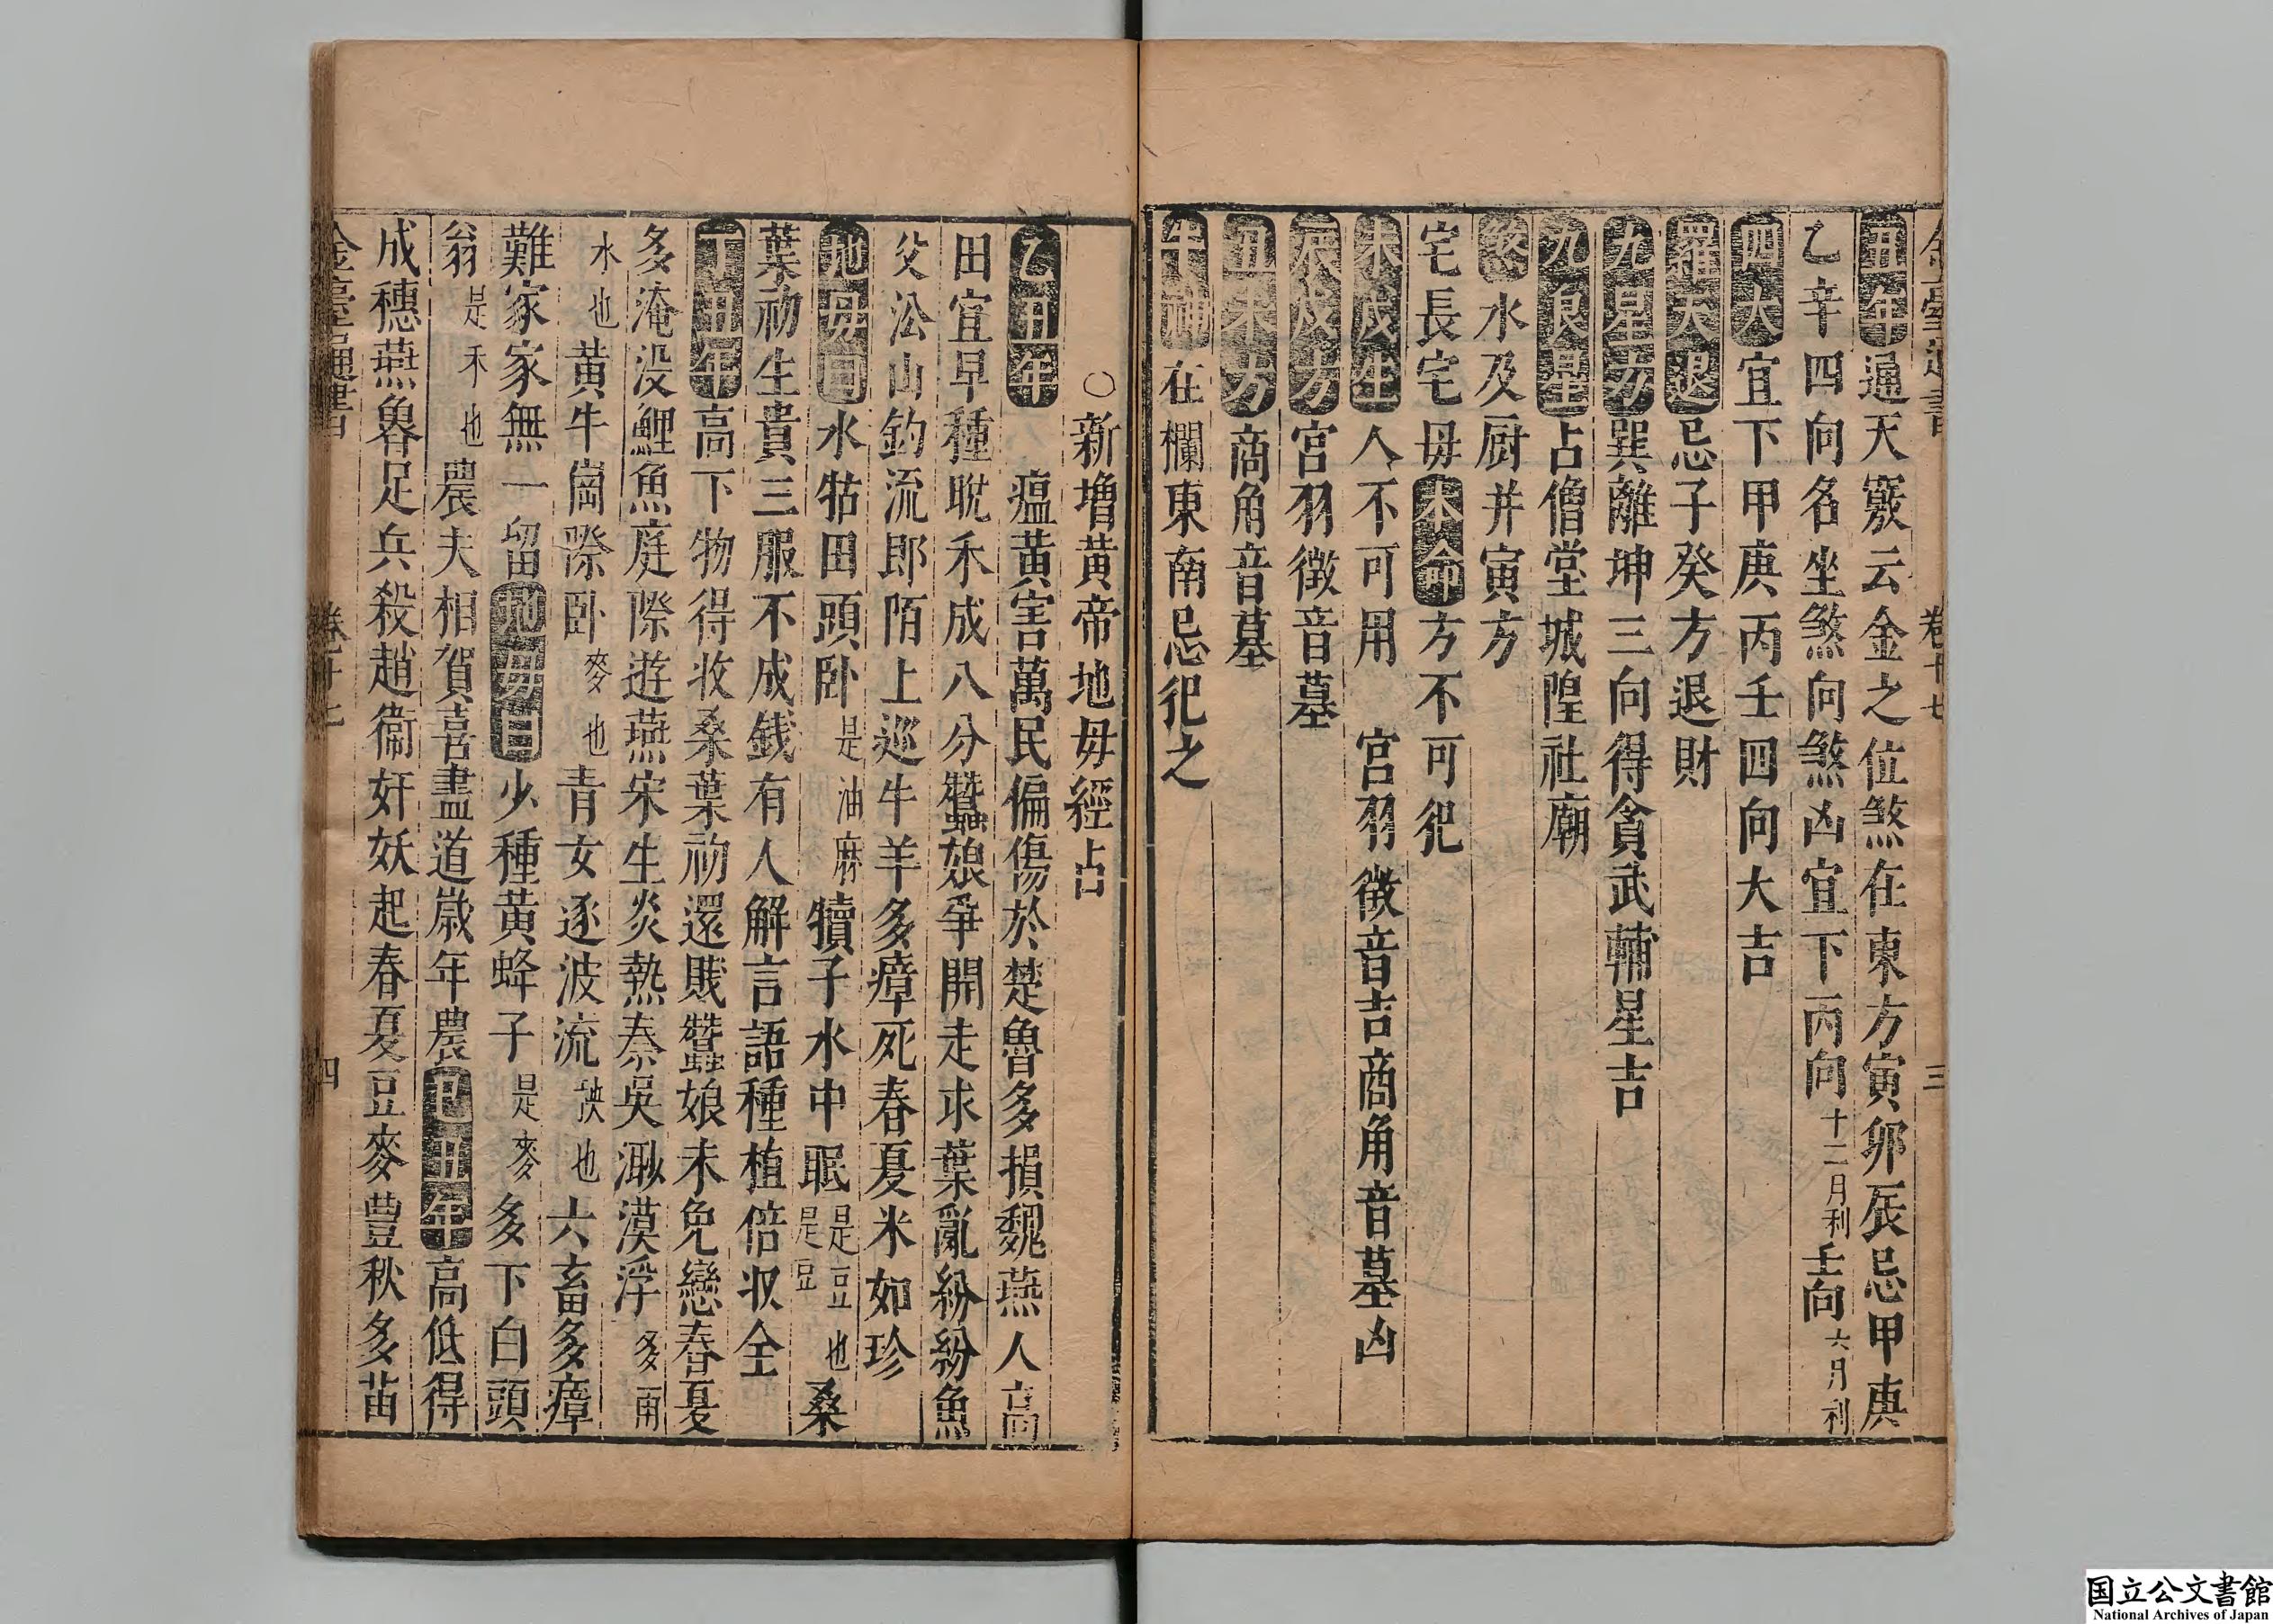 丑年通天竅云金之位煞在東方寅卯辰忌甲庚
乙辛四向名坐煞向煞凶宜下丙向十二月利壬向六月利
四大宜下甲庚丙壬四向大吉
羅天退忌子癸方退財
九星方巽離坤三向得貪武輔星吉
九良星占僧堂城隍社廟
煞水及厨井寅方
宅長宅母本命方不可犯
未戌生人不可用　宮羽徵音吉商角音墓凶
辰戌方宮羽徵音墓
丑未方商角音墓
牛神在欄東南忌犯之
卷十七
三
○新增黃帝地母經占
乙丑年　瘟黃害萬民偏傷於楚魯多損魏燕人高
田宜早種眈禾成八分蠶娘爭開走求葉亂紛紛魚
父汃山釣流郎陌上巡牛羊多瘴死春夏米如珍
地母曰水牯田頭卧是油麻犢子水中眠是豆也是豆桑
葉初生貴三服不成錢有人解言語種植倍収全
丁丑年高下物得收桑葉初還賤蠶娘未免戀春夏
多淹没鯉魚庭際遊燕宋生炎熱秦吳㴲漠浮多雨
水也黃牛崗際卧麥也青女逐波流秧也六畜多瘴
難家家無一留地母曰少種黃蜂子是麥多下白頭
翁是禾也農夫相賀喜盡道歲年農己丑年高低得
成穗燕魯足兵殺趙衛奸妖起春夏豆麥豊秋多苗
金臺通書
四
国立公文書館
National Archives of Japan